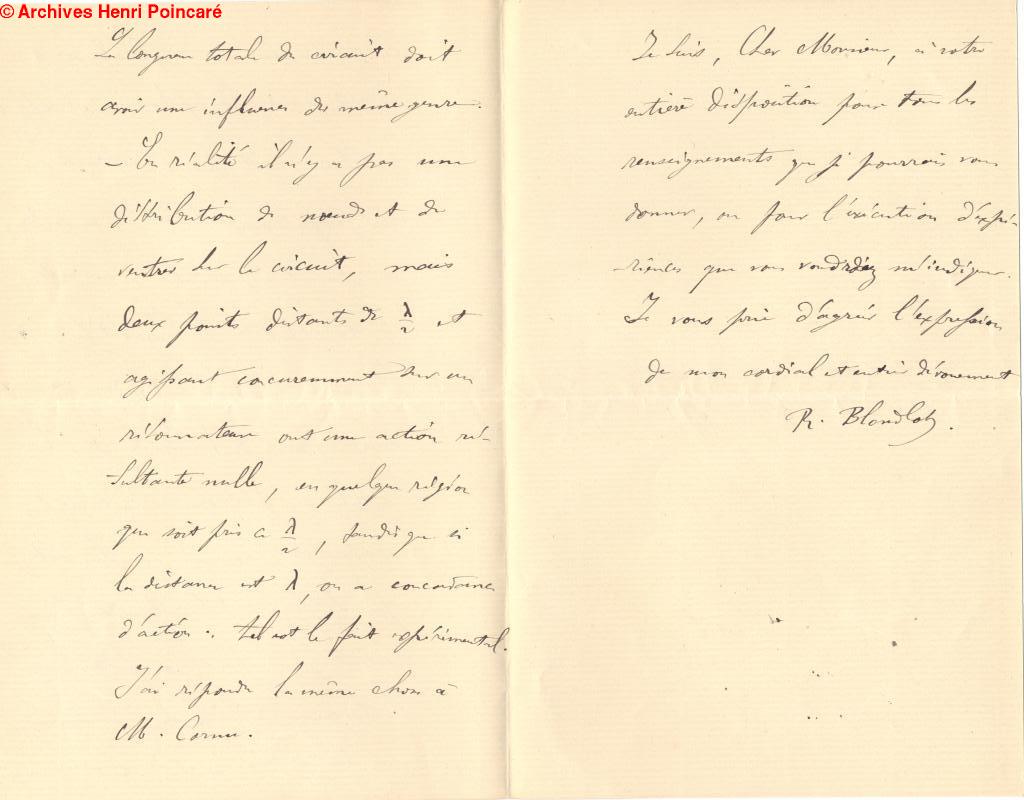 © Archives Henri Poincaré
La longueur totale du circuit doit
avoir une influence du même genre.
— En réalité il n'y a pas une
distribution de nœuds et de
ventres sur le circuit, mais
deux points distants de λ/2 et
agissant concuremment sur un
résonnateur ont une action ré-
sultante nulle, en quelque région
que soit pris ce λ/2, tandis que si
la distance est λ, on a concordance
d'action : tel est le fait expérimental.
J'ai répondu la même chose à
M. Cornu.
Je suis, Cher Monsieur, à votre
entière disposition pour tous les
renseignements que je pourrais vous
donner, ou pour l'exécution d'expé-
riences que vous voudriez m'indiquer.
Je vous prie d'agréer l'expression
de mon cordial et entier dévouement
R. Blondlot.